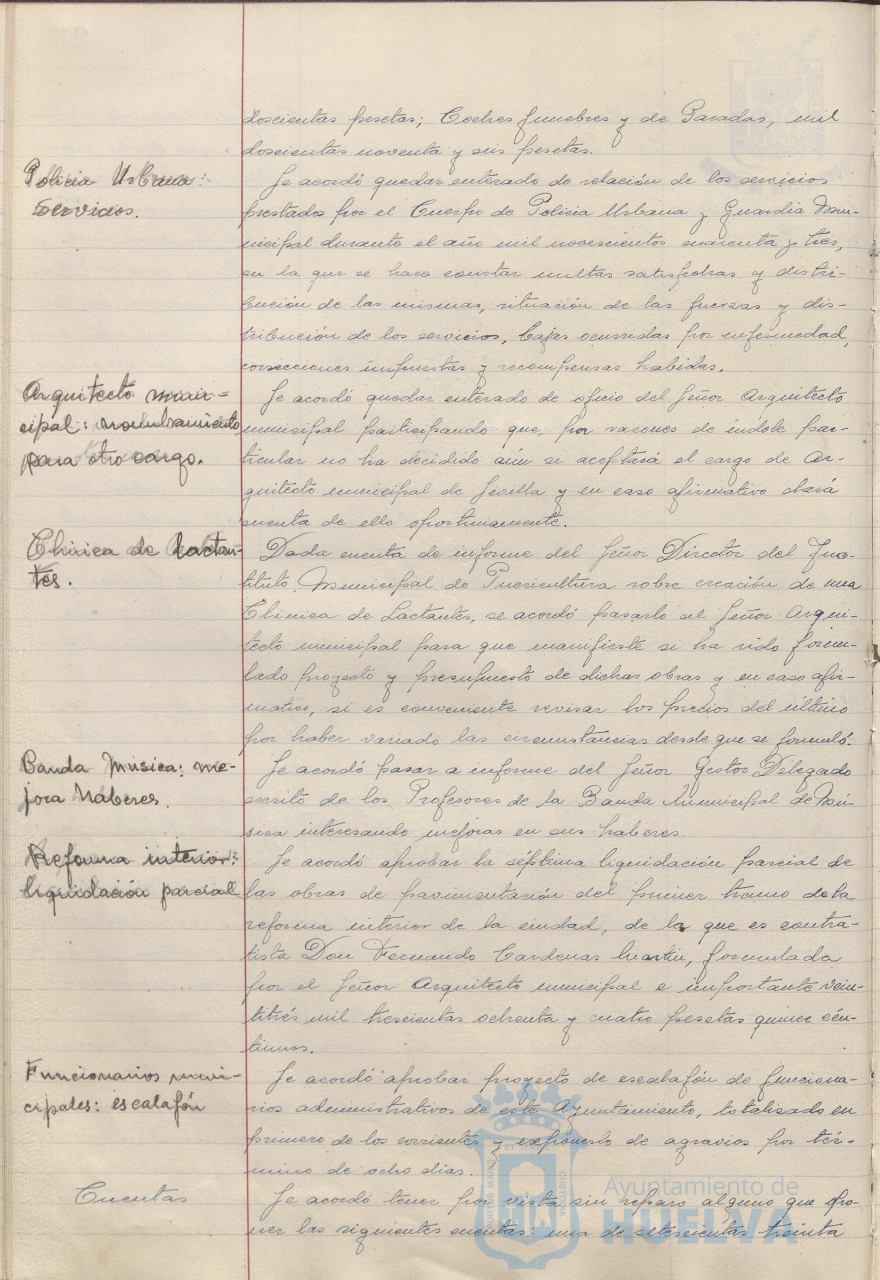 doscientas pesetas; Coches fúnebres y de Paradas, mil
doscientas noventa y seis pesetas.
Policia Urbana:
Servicios.
Se acordó quedar enterado de relación de los servicios
prestados por el Cuerpo de Policia Urbana y Guardia Mu-
nicipal durante el año mil novescientos cuarenta y tres,
en la que se hace constar multas satisfechas y distri-
bución de las mismas, situación de las fuerzas y dis-
tribución de los servicios, bajas ocurridas por enfermedad,
correcciones impuestas y recompensas habidas.
Arquitecto muni-
cipal: nombramiento
para otro cargo.
Se acordó quedar enterado de oficio del Señor Arquitecto
municipal participando que, por razones de indole par-
ticular no ha decidido aún si aceptará el cargo de Ar-
quitecto municipal de Sevilla y en caso afirmativo dará
cuenta de ello oportunamente.
Clinica de Lactan-
tes.
Dada cuenta de informe del Señor Director del Ins-
tituto Municipal de Puericultura sobre creación de una
Clinica de Lactantes, se acordó pasarlo al Señor Arqui-
tecto municipal para que manifieste si ha sido formu-
lado proyecto y presupuesto de dichas obras y en caso afir-
mativo, si es conveniente revisar los precios del último
por haber variado las circunstancias desde que se formuló.
Banda Música: me-
jora Haberes.
Se acordó pasar a informe del Señor Gestor Delegado
escrito de los Profesores de la Banda Municipal de Mú-
sica interesando mejoras en sus haberes.
Reforma interior:
liquidación parcial
Se acordó aprobar la séptima liquidación parcial de
las obras de pavimentación del primer tramo de la
reforma interior de la ciudad, de la que es contra-
tista Don Fernando Cardenas Martin, formulada
por el Señor Arquitecto municipal e importante vein-
titrés mil trescientas ochenta y cuatro pesetas quince cén-
timos.
Funcionarios muni-
cipales: escalafón
Se acordó aprobar proyecto de escalafón de funciona-
rios administrativos de este Ayuntamiento, totalizado en
primero de los corrientes y exponerlo de agravios por tér-
mino de ocho dias.
Cuentas
Se acordó tener por vista sin reparo alguno que opo-
ner las siguientes cuentas: una de setescientas treinta
Ayuntamiento de
HUELVA